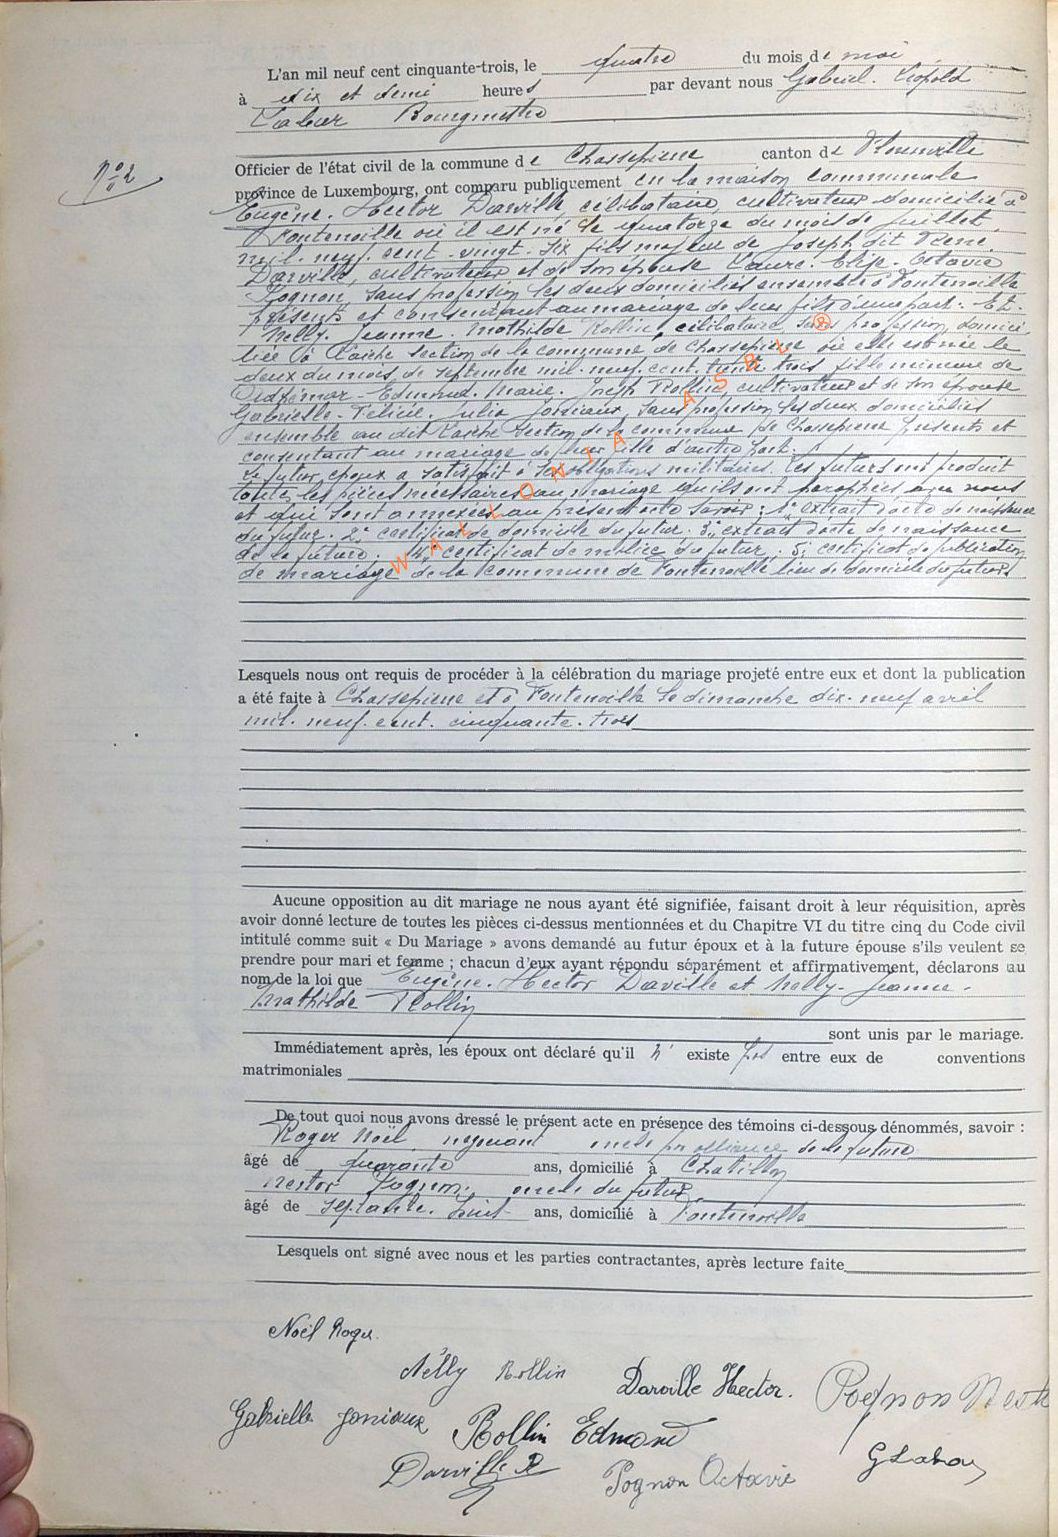 L'an mil neuf cent cinquante-trois, le quatre du mois de mai
à dix et demi heures par devant nous Gabriel. Léopold
Labar Bourgmestre
N° 2
Officier de l'état civil de la commune de Chassepierre canton de Florenville
province de Luxembourg, ont comparu publiquement en la maison communale
Eugène. Hector Darville, célibataire, cultivateur domicilié à
Fontenoille où il est né le quatorze du mois de juillet
mil. neuf. cent. vingt. six fils majeur de Joseph dit René
Darville, cultivateur et de son épouse Laure. Elise. Octavie
Pognon, sans profession, les deux domiciliés ensemble à Fontenoille
présents et consentant au mariage de leur fils d'une part. Et
Nelly. Jeanne. Mathilde Rollin, célibataire, sans profession, domici
liée à Laiche section de la commune de Chassepierre où elle est née le
deux du mois de septembre mil. neuf. cent. trente trois fille mineure de
Edmond. Marie. Joseph Rollin, cultivateur et de son épouse
Gabrielle. Félicie. Julia Jonniaux, sans profession, les deux domiciliés
ensemble au dit Laiche section de la commune de Chassepierre présents et
consentant au mariage de leur fille d'autre part.
Le futur époux a satisfait à ses obligations militaires. Les futurs ont produit
toutes les pièces nécessaires au mariage qu'ils ont paraphées avec nous
et qui sont annexées au présent acte savoir: 1° extrait d'acte de naissance
du futur. 2° certificat de domicile du futur. 3° extrait d'acte de naissance
de la future. 4° certificat de milice du futur. 5° certificat de publication
de mariage de la commune de Fontenoille lieu de domicile du futur.
WALLONIA ASBL ®
Lesquels nous ont requis de procéder à la célébration du mariage projeté entre eux et dont la publication
a été faite à Chassepierre et à Fontenoille le dimanche dix. neuf avril
mil. neuf. cent. cinquante. trois
Aucune opposition au dit mariage ne nous ayant été signifiée, faisant droit à leur réquisition, après
avoir donné lecture de toutes les pièces ci-dessus mentionnées et du Chapitre VI du titre cinq du Code civil
intitulé comme suit « Du Mariage » avons demandé au futur époux et à la future épouse s'ils veulent se
prendre pour mari et femme ; chacun d'eux ayant répondu séparément et affirmativement, déclarons au
nom de la loi que Eugène. Hector Darville et Nelly. Jeanne.
Mathilde Rollin
sont unis par le mariage.
Immédiatement après, les époux ont déclaré qu'il n' existe pas entre eux de conventions
matrimoniales
De tout quoi nous avons dressé le présent acte en présence des témoins ci-dessous dénommés, savoir :
Roger Noël négociant oncle par alliance de la future
âgé de quarante ans, domicilié à Chatillon
Nestor Pognon, oncle du futur
âgé de septante. huit ans, domicilié à Fontenoille
Lesquels ont signé avec nous et les parties contractantes, après lecture faite
Noël Roger.
Nelly Rollin Darville Hector. Pognon Nest
Gabrielle Jonniaux Rollin Edmond
Darville R Pognon Octavie GLabar